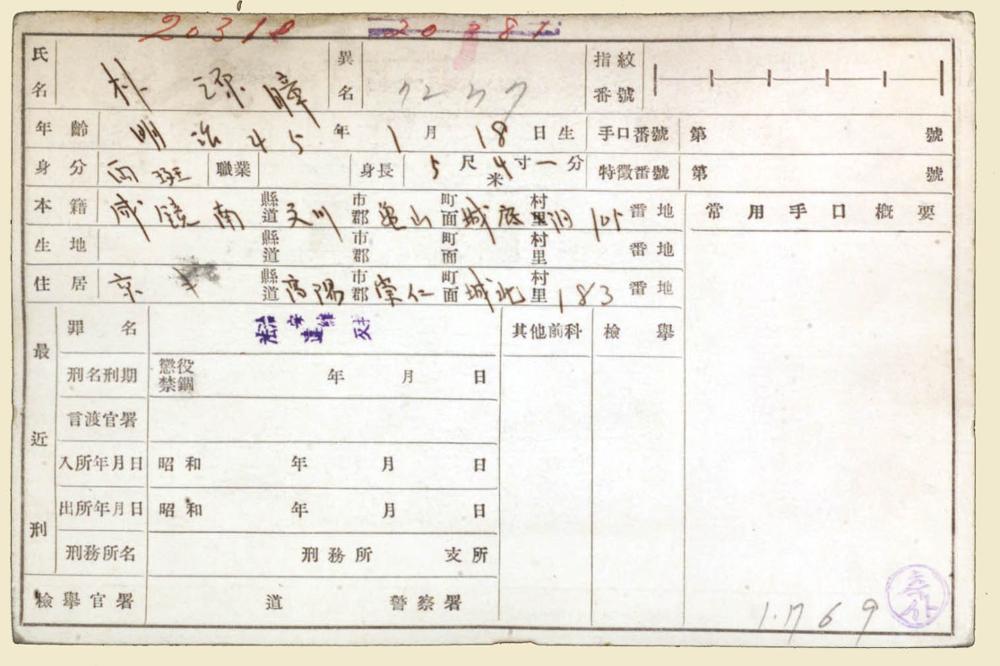 20310 20381
氏名 朴 異名 7237 指紋番號
年齡 明治45年1月18日生 手口番號 第 號
身分 両班 職業 身長 5尺4寸一分 米 特徵番號 第 號
本籍 咸鏡南 縣道 川 市郡 山 町面 城底 村里 洞 105 番地 常用手口概要
生地 縣道 市郡 町面 村里 番地
住居 京 縣道 高陽 市郡 崇仁 町面 城北 村里 183 番地
最近刑
罪名 治安維 違反 其他前科 檢擧
刑名刑期 懲役 禁錮 年 月 日
言渡官署
入所年月日 昭和 年 月 日
出所年月日 昭和 年 月 日
刑務所名 刑務所 支所
檢擧官署 道 警察署
1.769